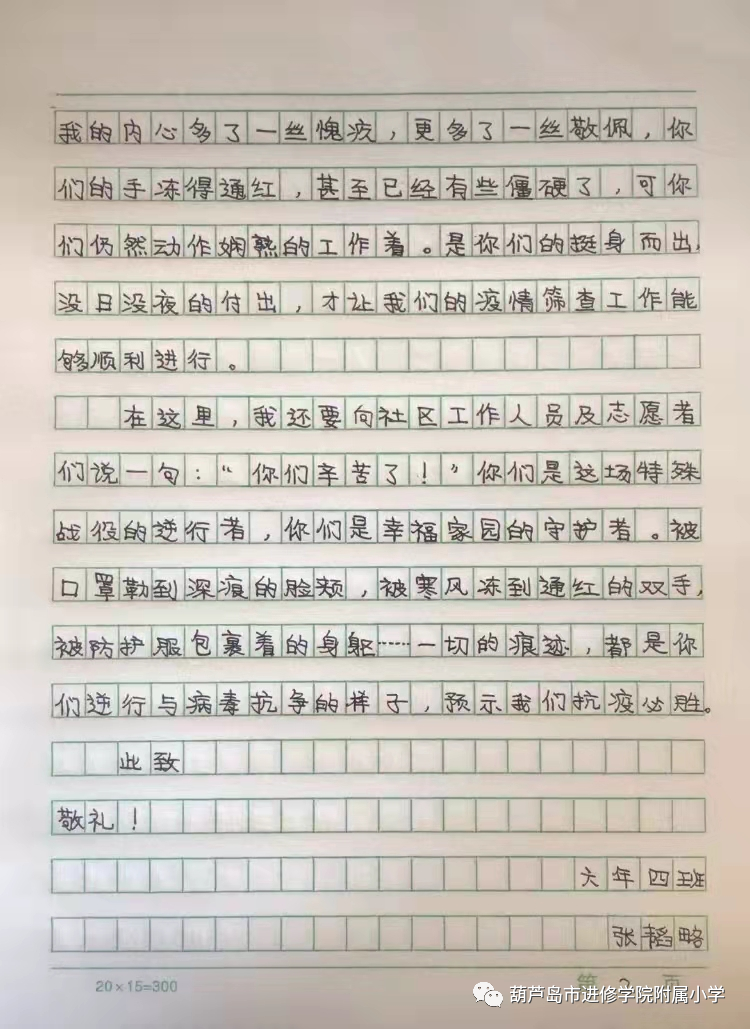 我的内心多了一丝愧疚，更多了一丝敬佩，你
们的手冻得通红，甚至已经有些僵硬了，可你
们仍然动作娴熟的工作着。是你们的挺身而出，
没日没夜的付出，才让我们的疫情筛查工作能
够顺利进行。
在这里，我还要向社区工作人员及志愿者
们说一句：“你们辛苦了！”你们是这场特殊
战役的逆行者，你们是幸福家园的守护者。被
口罩勒到深痕的脸颊，被寒风冻到通红的双手，
被防护服包裹着的身躯……一切的痕迹，都是你
们逆行与病毒抗争的样子，预示我们抗疫必胜。
此致
敬礼！
六年四班
张韬略
20×15=300
第 2 页
葫芦岛市进修学院附属小学